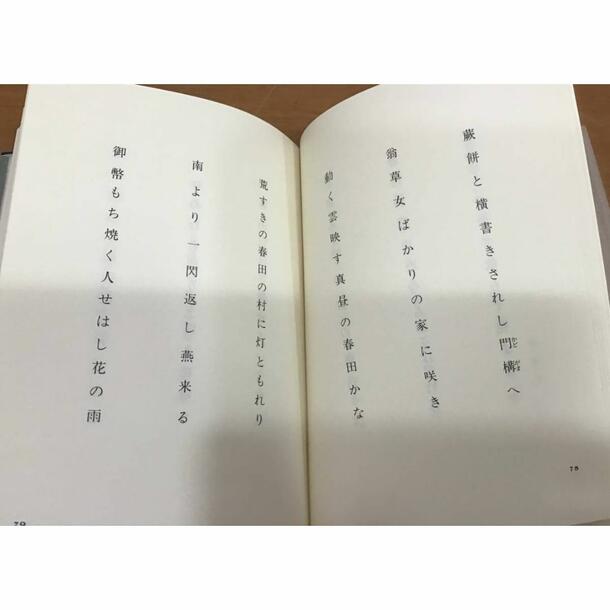 蕨餅と横書きされし門構へ
翁草女ばかりの家に咲き
動く雲映す真昼の春田かな
78
荒すきの春田の村に灯ともれり
南より一閃返し燕来る
御幣もち焼く人せはし花の雨
79